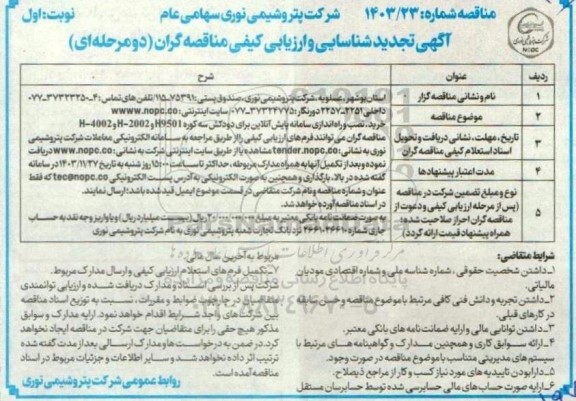 مناقصه شماره: ۱۴۰۳/۲۳
شرکت پتروشیمی نوری سهامی عام
نوبت: اول
NOPC
آگهی تجدید شناسایی و ارزیابی کیفی مناقصه گران (دو مرحله‌ای)
ردیف
عنوان
شرح
۱
نام و نشانی مناقصه گزار
استان بوشهر، عسلویه، شرکت پتروشیمی نوری، صندوق پستی: ۷۵۳۹۱-۱۱۵ تلفن های تماس: ۴-۰۷۷۳۷۳۲۳۲۵۰
داخلی ۲۲۵۱-۲۲۵۷ دورنگار: ۰۷۷-۳۷۳۲۴۷۷۵ سایت اینترنتی: www.nopc.co
۲
موضوع مناقصه
خرید، نصب و راه اندازی سامانه پایش آنلاین برای دودکش سه کوره H9501 و H-2002 و H-4002
۳
تاریخ، مهلت، نشانی دریافت و تحویل
اسناد استعلام کیفی مناقصه گران
مناقصه گران می توانند فرم های ارزیابی کیفی را از طریق مراجعه به سامانه الکترونیکی معاملات شرکت پتروشیمی
نوری به نشانی: tender.nopc.co مشاهده یا از طریق سایت اینترنتی شرکت به نشانی: www.nopc.co دریافت
نموده و بعد از تکمیل آنها به همراه مدارک مربوطه، حداکثر تا ساعت ۱۵:۰۰ روز شنبه به تاریخ ۱۴۰۳/۱۱/۲۷ در سامانه
گفته شده در بالا، بارگذاری و همچنین به صورت الکترونیکی به آدرس پست الکترونیکی tec@nopc.co که فقط
عنوان و شماره مناقصه و نام شرکت متقاضی در قسمت موضوع ایمیل قید شده باشد؛ ارسال نمایند.
۴
مدت اعتبار پیشنهادها
در اسناد مناقصه آورده خواهد شد.
۵
نوع و مبلغ تضمین شرکت در مناقصه
(پس از مرحله ارزیابی کیفی و دعوت از
مناقصه گران احراز صلاحیت شده؛
همراه پیشنهاد قیمت ارائه گردد)
به صورت ضمانت نامه بانکی معتبر به مبلغ ریال (بیست میلیارد ریال) و یا واریز وجه نقد به حساب
جاری شماره نزد بانک تجارت شعبه پتروشیمی نوری به نام شرکت پتروشیمی نوری
شرایط متقاضی:
۱ـ داشتن شخصیت حقوقی، شماره شناسه ملی و شماره اقتصادی مودیان
مالیاتی.
۲ـ داشتن تجربه و دانش فنی کافی مرتبط با موضوع مناقصه و حسن سابقه
در کارهای قبلی.
۳ـ داشتن توانایی مالی و ارایه ضمانت نامه های بانکی معتبر.
۴ـ ارائه سوابق کاری و همچنین مدارک و گواهینامه های مرتبط با
سیستم های مدیریتی متناسب با موضوع مناقصه در صورت وجود.
۵ـ دارا بودن تاییدیه های مورد نیاز کسب و کار از مراجع ذیصلاح.
۶ـ ارایه صورت حساب های مالی حسابرسی شده توسط حسابرسان مستقل
مربوط به آخرین سال مالی.
۷ـ تکمیل فرم های استعلام ارزیابی کیفی و ارسال مدارک مربوط.
شرکت پس از بررسی اسناد و مدارک دریافت شده و ارزیابی توانمندی
متقاضیان در چارچوب ضوابط و مقررات، نسبت به توزیع اسناد مناقصه
بین شرکت های واجد شرایط اقدام خواهد نمود. ارایه مدارک و سوابق
مذکور هیچ حقی را برای متقاضیان جهت شرکت در مناقصه ایجاد نخواهد
کرد. در ضمن به درخواست ها و مدارک ارسالی بعد از مدت گفته شده
ترتیب اثر داده نخواهد شد و سایر اطلاعات و جزئیات مربوط در اسناد
مناقصه آمده است.
روابط عمومی شرکت پتروشیمی نوری